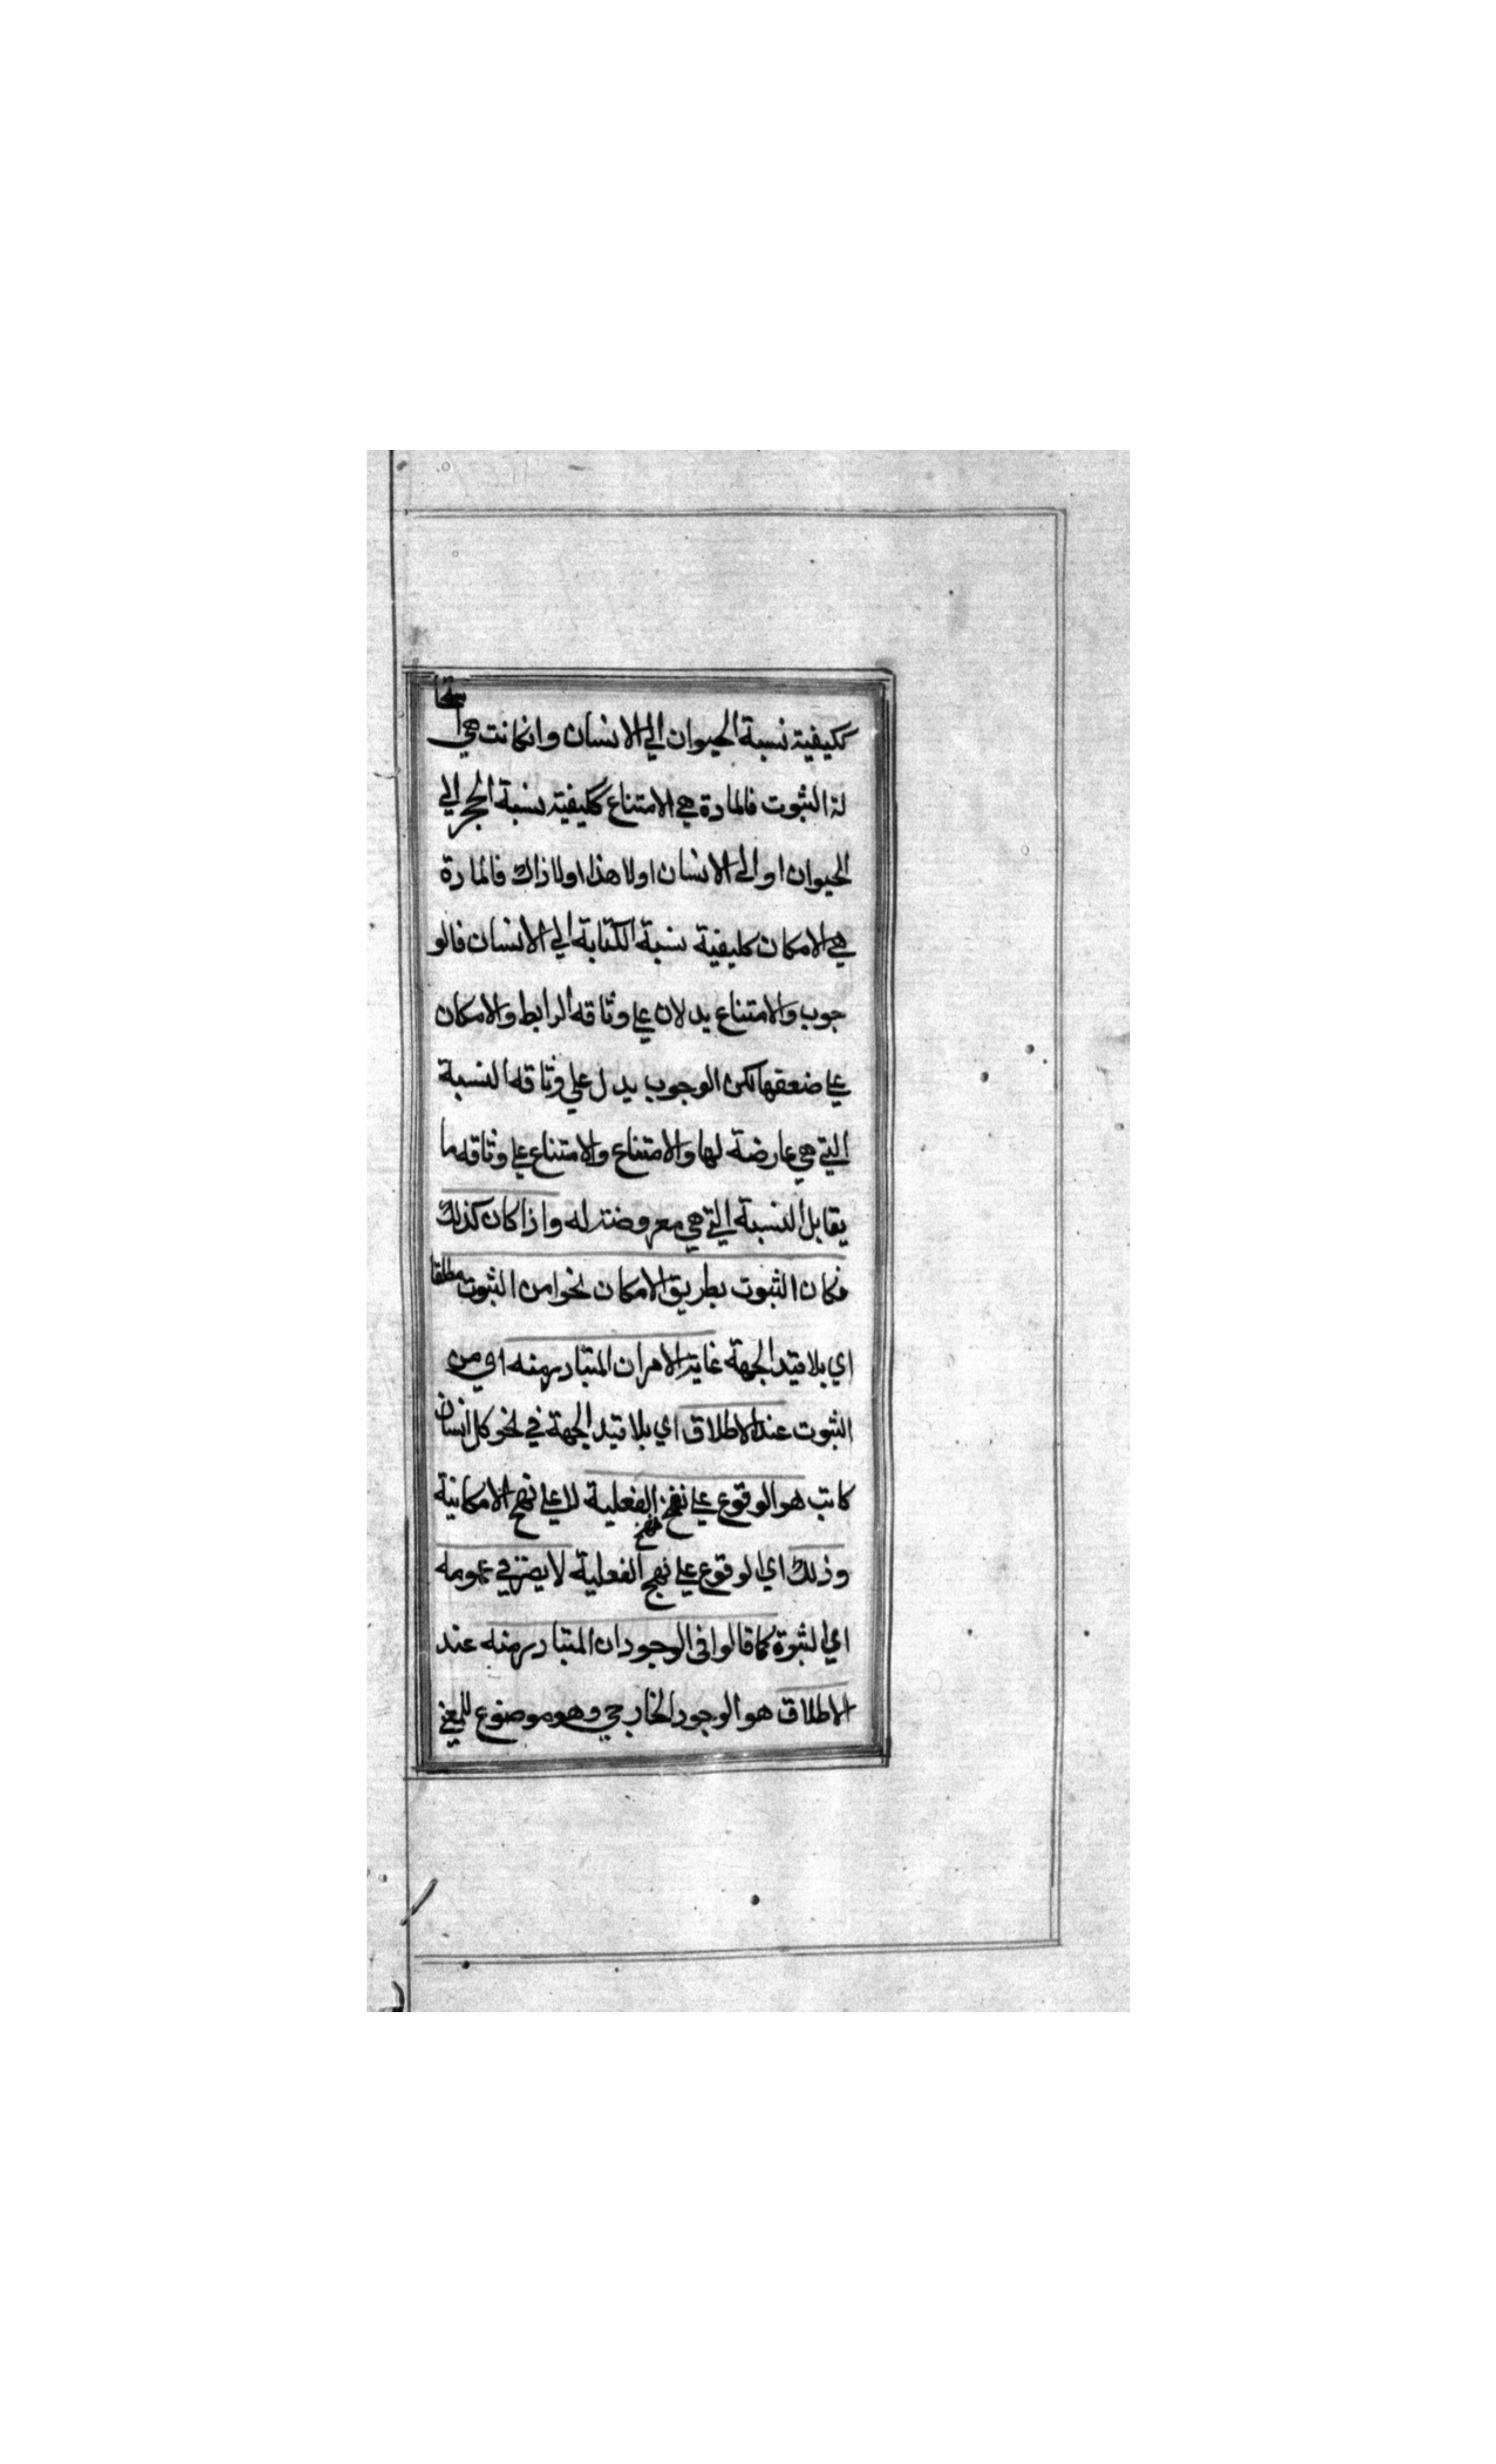 ككيفية نسبة الحيوان الي الانسان وانكانت هي استحا
لة الثبوت فالمادة هي الامتناع ككيفية نسبة الحجر الي
الحيوان او الي الانسان او لا هذا او لا ذاك فالمادة
هي الامكان ككيفية نسبة الكتابة الي الانسان فالو
جوب والامتناع يدلان علي وثاقه الرابط والامكان
علي ضعفها لكن الوجوب يدل علي وثاقه النسبة
التي هي عارضة لها والامتناع والامتناع علي وثاقه ما
يقابل النسبة التي هي معروضة له واذا كان كذلك
فكان الثبوت بطريق الامكان نحوا من الثبوت مطلقا
اي بلا قيد الجهة غاية الامر ان المتبادر منه اي من
الثبوت عند الاطلاق اي بلا قيد الجهة في نحو كل انسان
كاتب هو الوقوع علي نهج الفعلية لا علي نهج الامكانية
وذلك اي الوقوع علي نهج الفعلية لا يضر في عمومه
اي الثبوة كما قالوا في الوجود ان المتبادر منه عند
الاطلاق هو الوجود الخارجي وهو موضوع للمعني